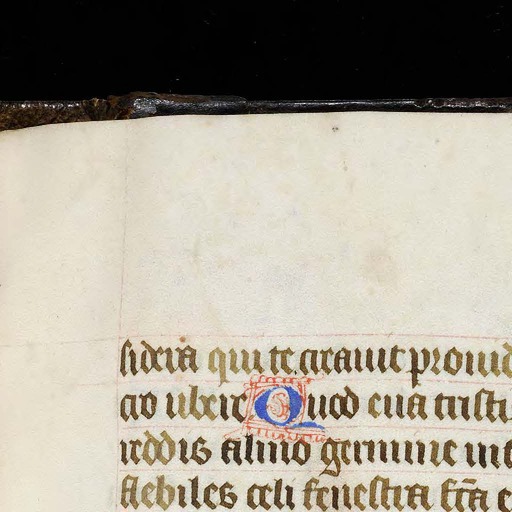 sidera qui te creauit prouid
cro ubere Quod eua tristi
reddis almo germine int
flebiles celi fenestra fc̄a e